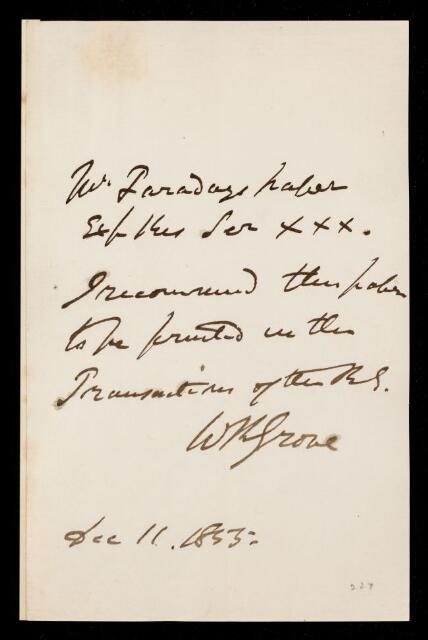 Mr. Faradays paper
Exp Res Ser XXX.
I recommend this paper
to be printed in the
Transactions of the R.S.
WRGrove
Dec 11. 1855.
227